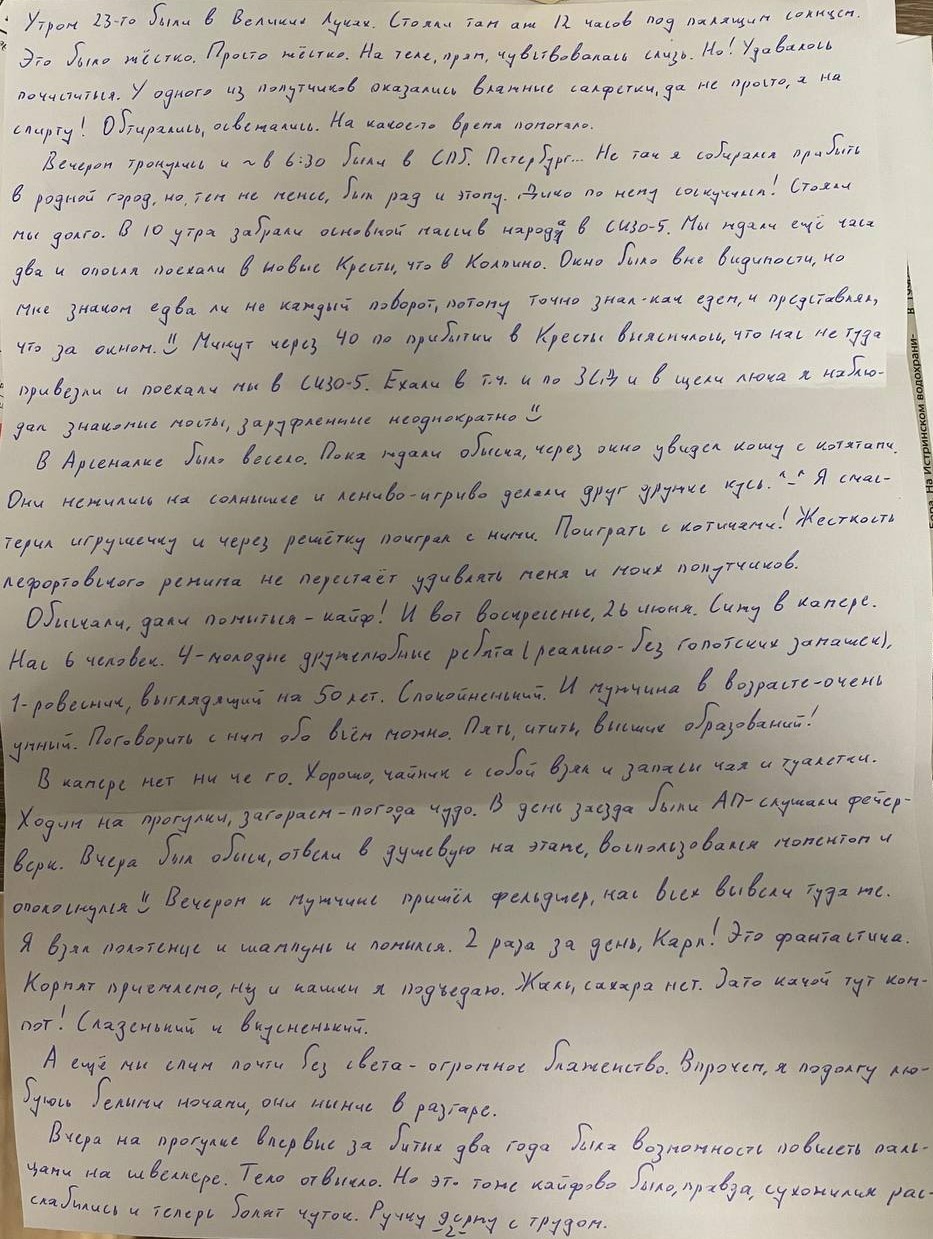 Утром 23-го были в Великих Луках. Стояли там аж 12 часов под палящим солнцем.
Это было жёстко. Просто жёстко. На теле, прям, чувствовалась слизь. Но! Удавалось
почиститься. У одного из попутчиков оказались влажные салфетки, да не просто, а на
спирту! Обтирались, освежались. На какое-то время помогало.
Вечером тронулись и ~ в 6:30 были в СПб. Петербург... Не так я собирался прибыть
в родной город, но, тем не менее, был рад и этому. Дико по нему соскучился! Стояли
мы долго. В 10 утра забрали основной массив народа в СИЗО-5. Мы ждали ещё часа
два и опосля поехали в новые Кресты, что в Колпино. Окно было вне видимости, но
мне знаком едва ли не каждый поворот, потому точно знал-как едем, и представлял,
что за окном. Минут через 40 по прибытии в Кресты выяснилось, что нас не туда
привезли и поехали мы в СИЗО-5. Ехали в т.ч. и по ЗСД и в щели люка я наблю-
дал знакомые мосты, заруфленные неоднократно
В Арсеналке было весело. Пока ждали обыска, через окно увидел кошу с котятами.
Они нежились на солнышке и лениво-игриво делали друг дружке кусь. ^-^ Я смас-
терил игрушечку и через решётку поиграл с ними. Поиграть с котиками! Жесткость
лефортовского режима не перестаёт удивлять меня и моих попутчиков.
Обыскали, дали помыться - кайф! И вот воскресенье, 26 июня. Сижу в камере.
Нас 6 человек. 4-молодые дружелюбные ребята (реально-без гопотских замашек),
1-ровесник, выглядящий на 50 лет. Спокойненький. И мужчина в возрасте-очень
умный. Поговорить с ним обо всём можно. Пять, итить, высших образований!
В камере нет ни че го. Хорошо, чайник с собой взял и запасы чая и туалетки.
Ходим на прогулки, загораем-погода чудо. В день заезда были АП-слушали фейер-
верк. Вчера был обыск, отвели в душевую на этаже, воспользовался моментом и
ополоснулся Вечером к мужчине пришёл фельдшер, нас всех вывели туда же.
Я взял полотенце и шампунь и помылся. 2 раза за день, Карл! Это фантастика.
Кормят приемлемо, ну и кашки я подъедаю. Жаль, сахара нет. Зато какой тут ком-
пот! Слазенький и вкусненький.
А ещё мы спим почти без света - огромное блаженство. Впрочем, я подолгу лю-
буюсь белыми ночами, они нынче в разгаре.
Вчера на прогулке впервые за битых два года была возможность повисеть паль-
цами на швеллере. Тело отвыкло. Но это тоже кайфово было, правда, сухожилия рас-
слабились и теперь болят чуток. Ручку держу с трудом.
-2-
Бора. На Истринском водохрани-